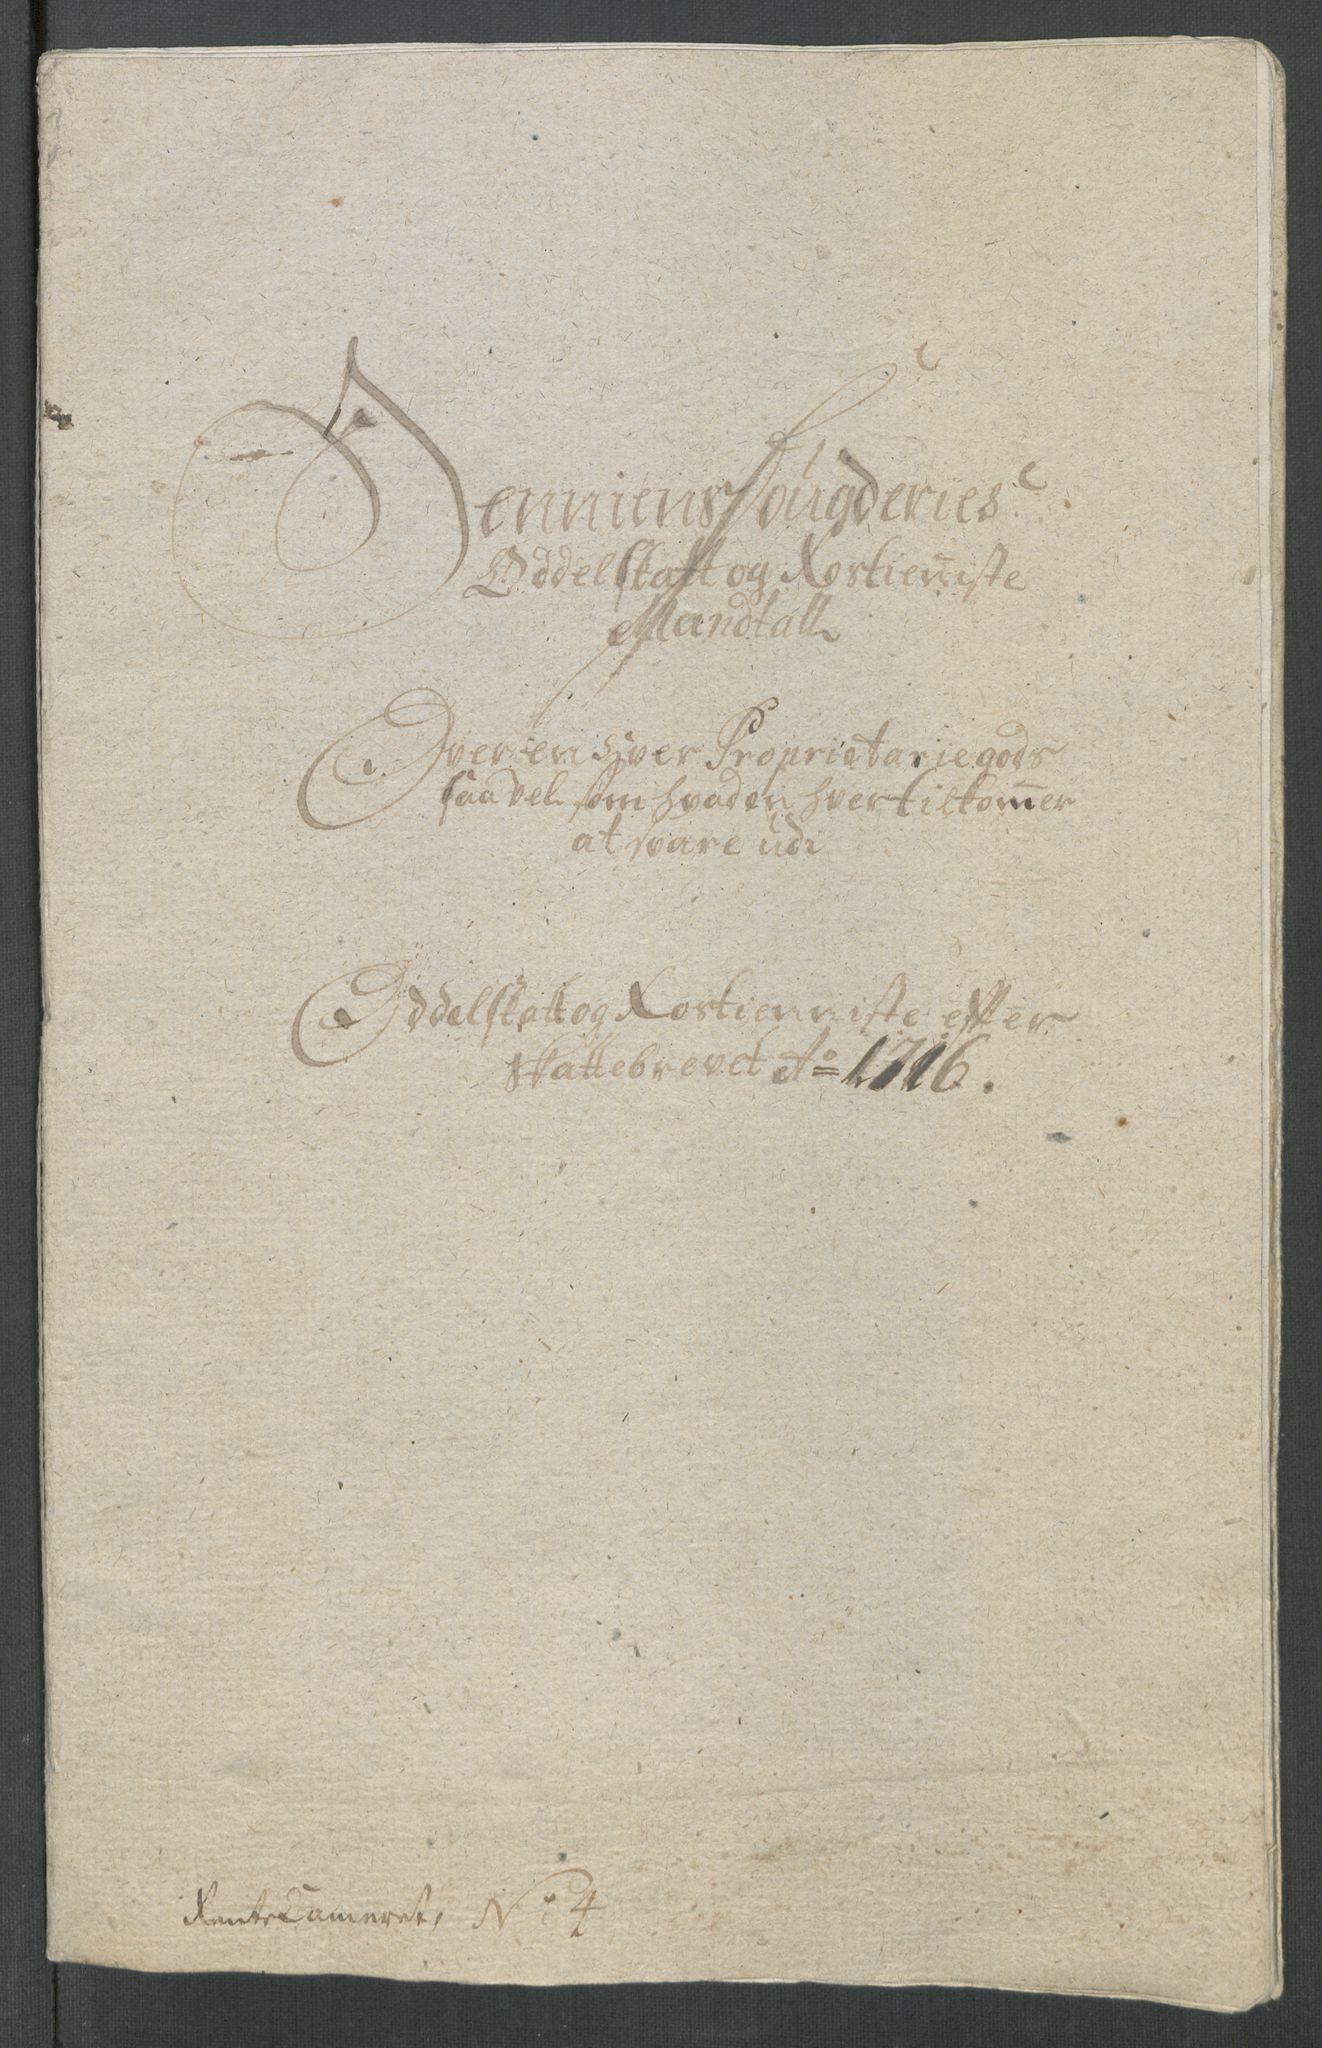 Senniens fougderies
Oddelskatt og Rostienniste
Mandtall
Over en hver Proprietarie gods
saavel som hvad en hver tilkom̄er
at svare udi
Oddelskatt og Rostienniste effter
skattebrevet Ao 1716.
RenteCameret, No 4